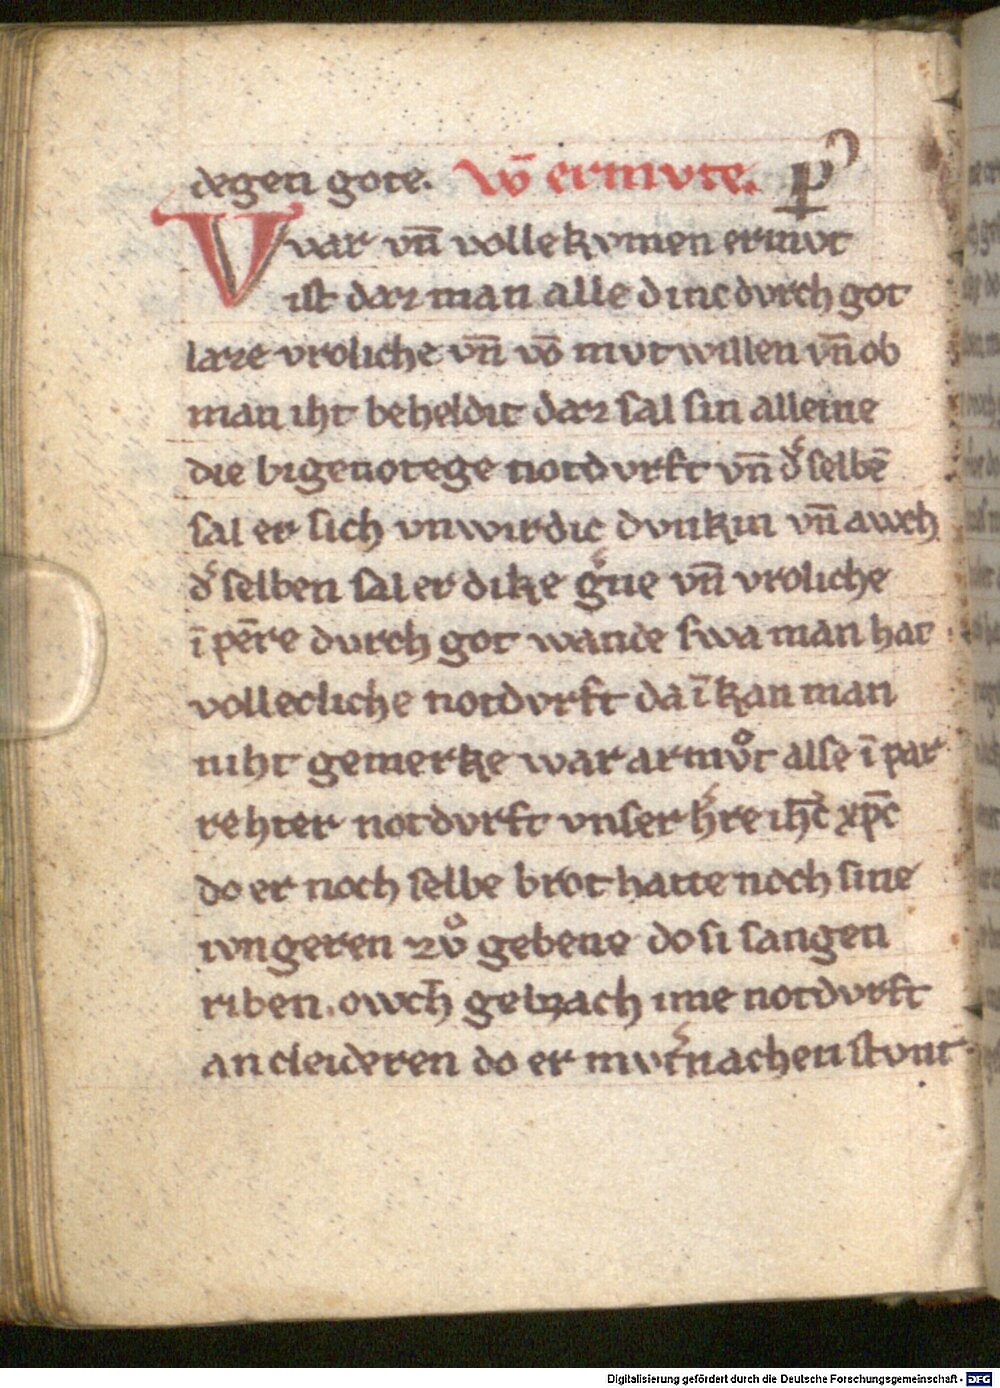 degen gote. vō ermvte. p
Vvar vn̄ vollekvmen ermvt
ist daz man alle dinc dvrch got
laze vroliche vn̄ vō mvtwillen vn̄ ob
man iht beheldit daz sal sin alleine
die bigenotege notdvrft vn̄ dˢ selbē
sal er sich vnwirdic dvnkin vn̄ awch
dˢ selben sal er dike gˢne vn̄ vroliche
īpēre dvrch got wande swa man hat
vollecliche notdvrft da ī kan man
niht gemerke war armvͦt alse ī par
rehter notdvrft vnser hˢre ih̄c xp̄c
do er noch selbe brot hatte noch sine
ivngeren zvͦ gebene do si sangen
riben. owch gebrach ime notdvrft
an cleideren do er mvtˢnachen stvnt
Digitalisierung gefördert durch die Deutsche Forschungsgemeinschaft - DFG